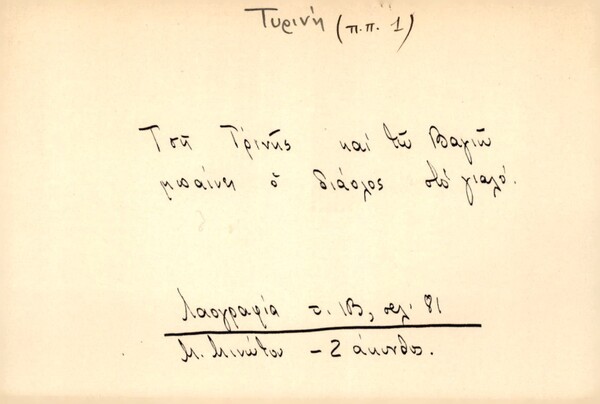 Τυρινή (π.π. 1)
Τσῆ Τρινῆς καί τῶ Βαγιῶ
μπαίνει ὁ διάολος στό γιαλό.
Λαογραφία τ. ΙΒ, σελ. 81
Μ. Μινώτου - Ζάκυνθος.